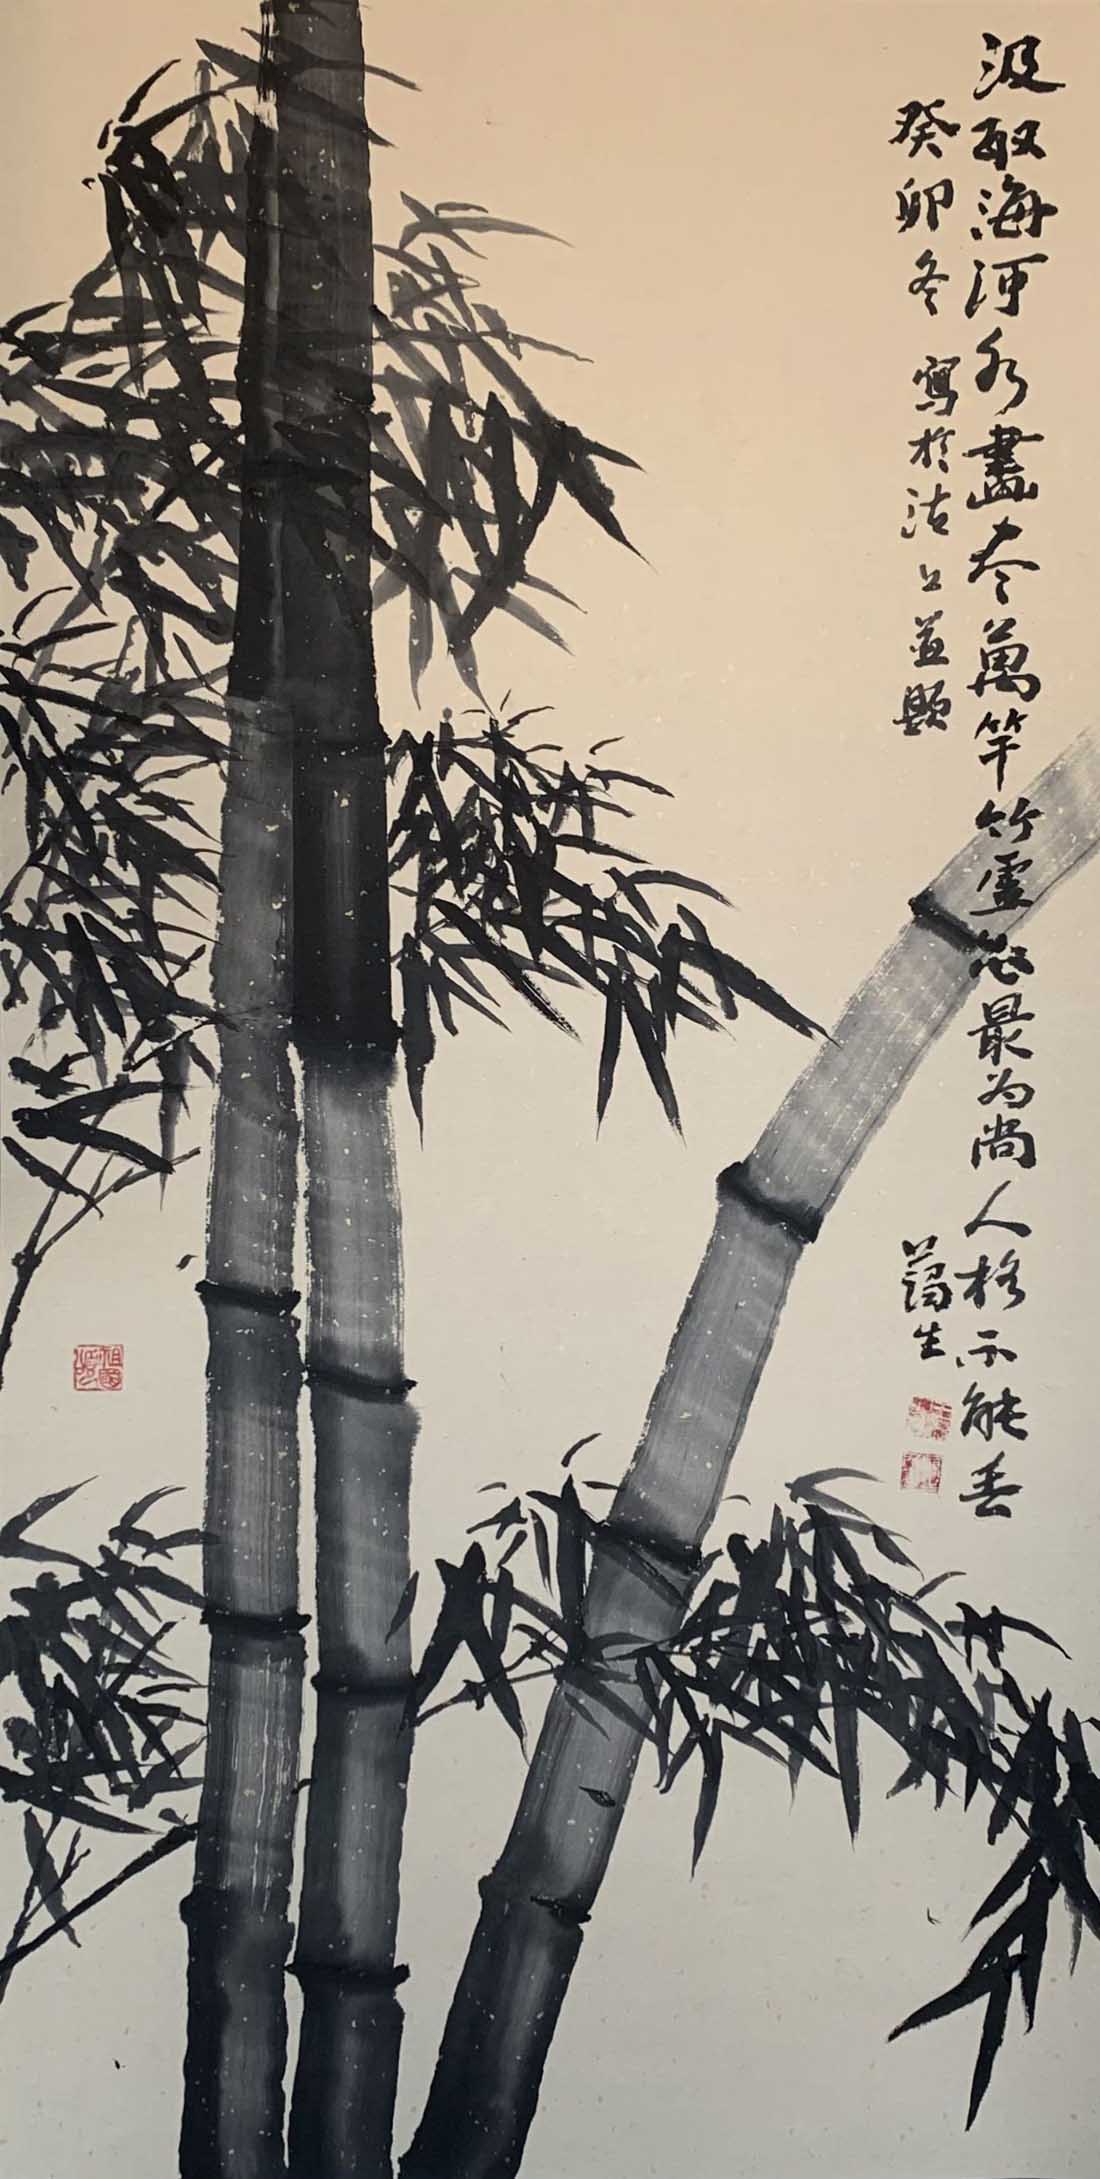 汲取海河水畫尽萬竿竹虛心最为尚人格不能丢
癸卯冬寫於沽上並題
蔼生